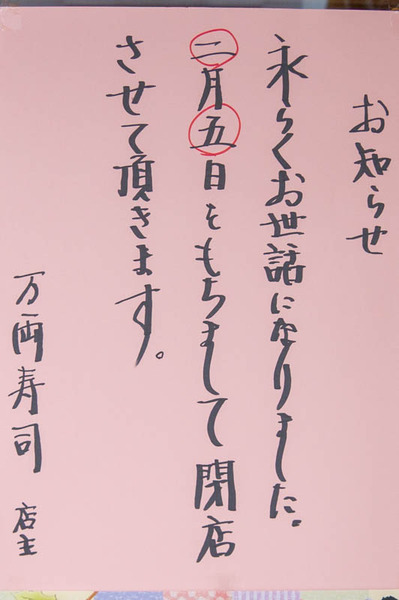 お知らせ
永らくお世話になりました。
二月五日をもちまして閉店
させて頂きます。
万両寿司 店主